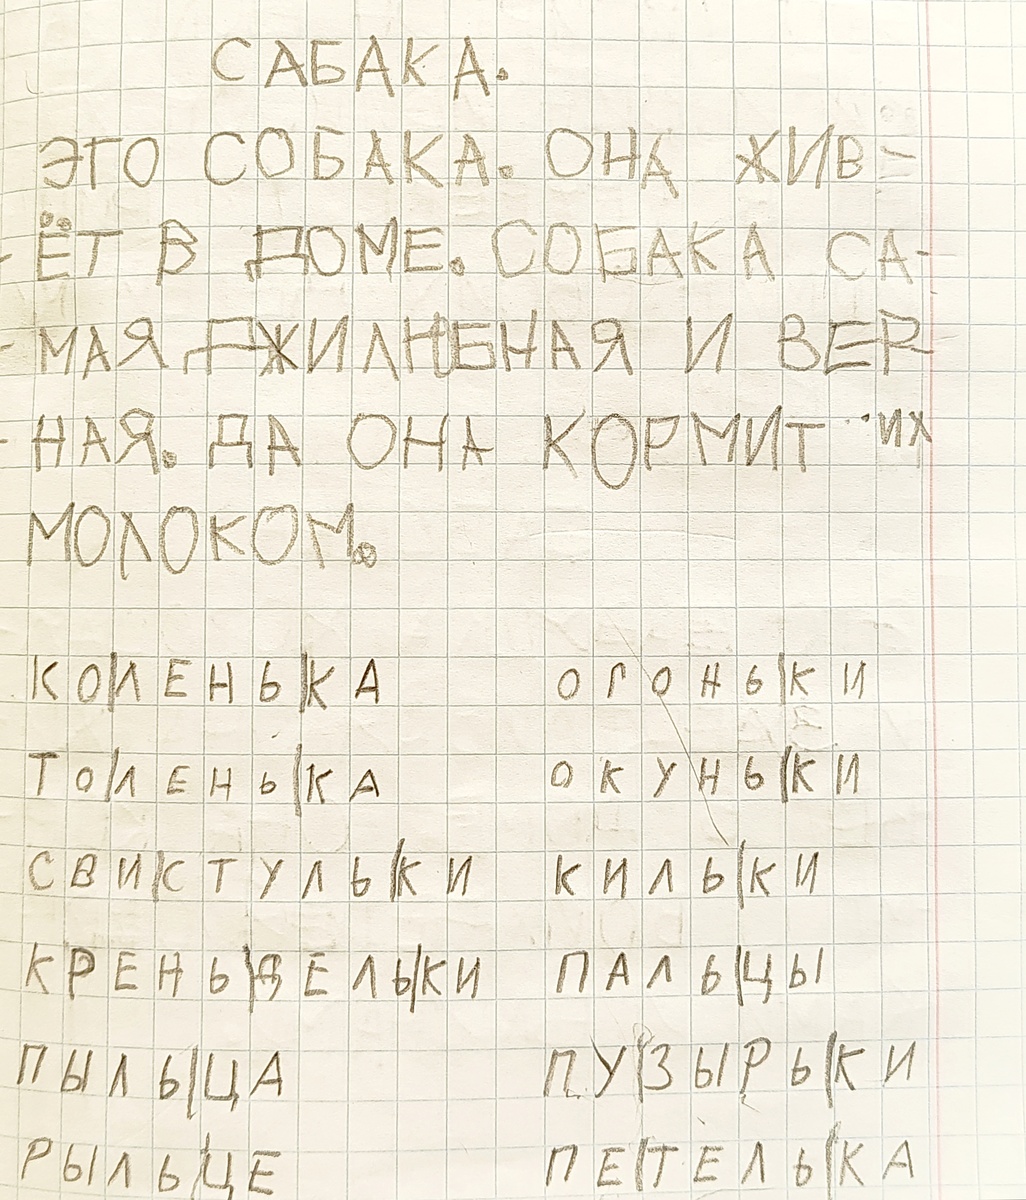 САБАКА.
ЭТО СОБАКА. ОНА ЖИВ-
ЁТ В ДОМЕ. СОБАКА СА-
МАЯ И ВЕР-
НАЯ. ДА ОНА КОРМИТ ИХ
МОЛОКОМ.
КО|ЛЕНЬ|КА ОГОНЬ|КИ
ТО|ЛЕНЬ|КА ОКУНЬ|КИ
СВИ|СТУЛЬ|КИ КИЛЬ|КИ
КРЕНЬ|ДЕЛЬ|КИ ПАЛЬ|ЦЫ
ПЫЛЬ|ЦА ПУ|ЗЫРЬ|КИ
РЫЛЬ|ЦЕ ПЕ|ТЕЛЬ|КА